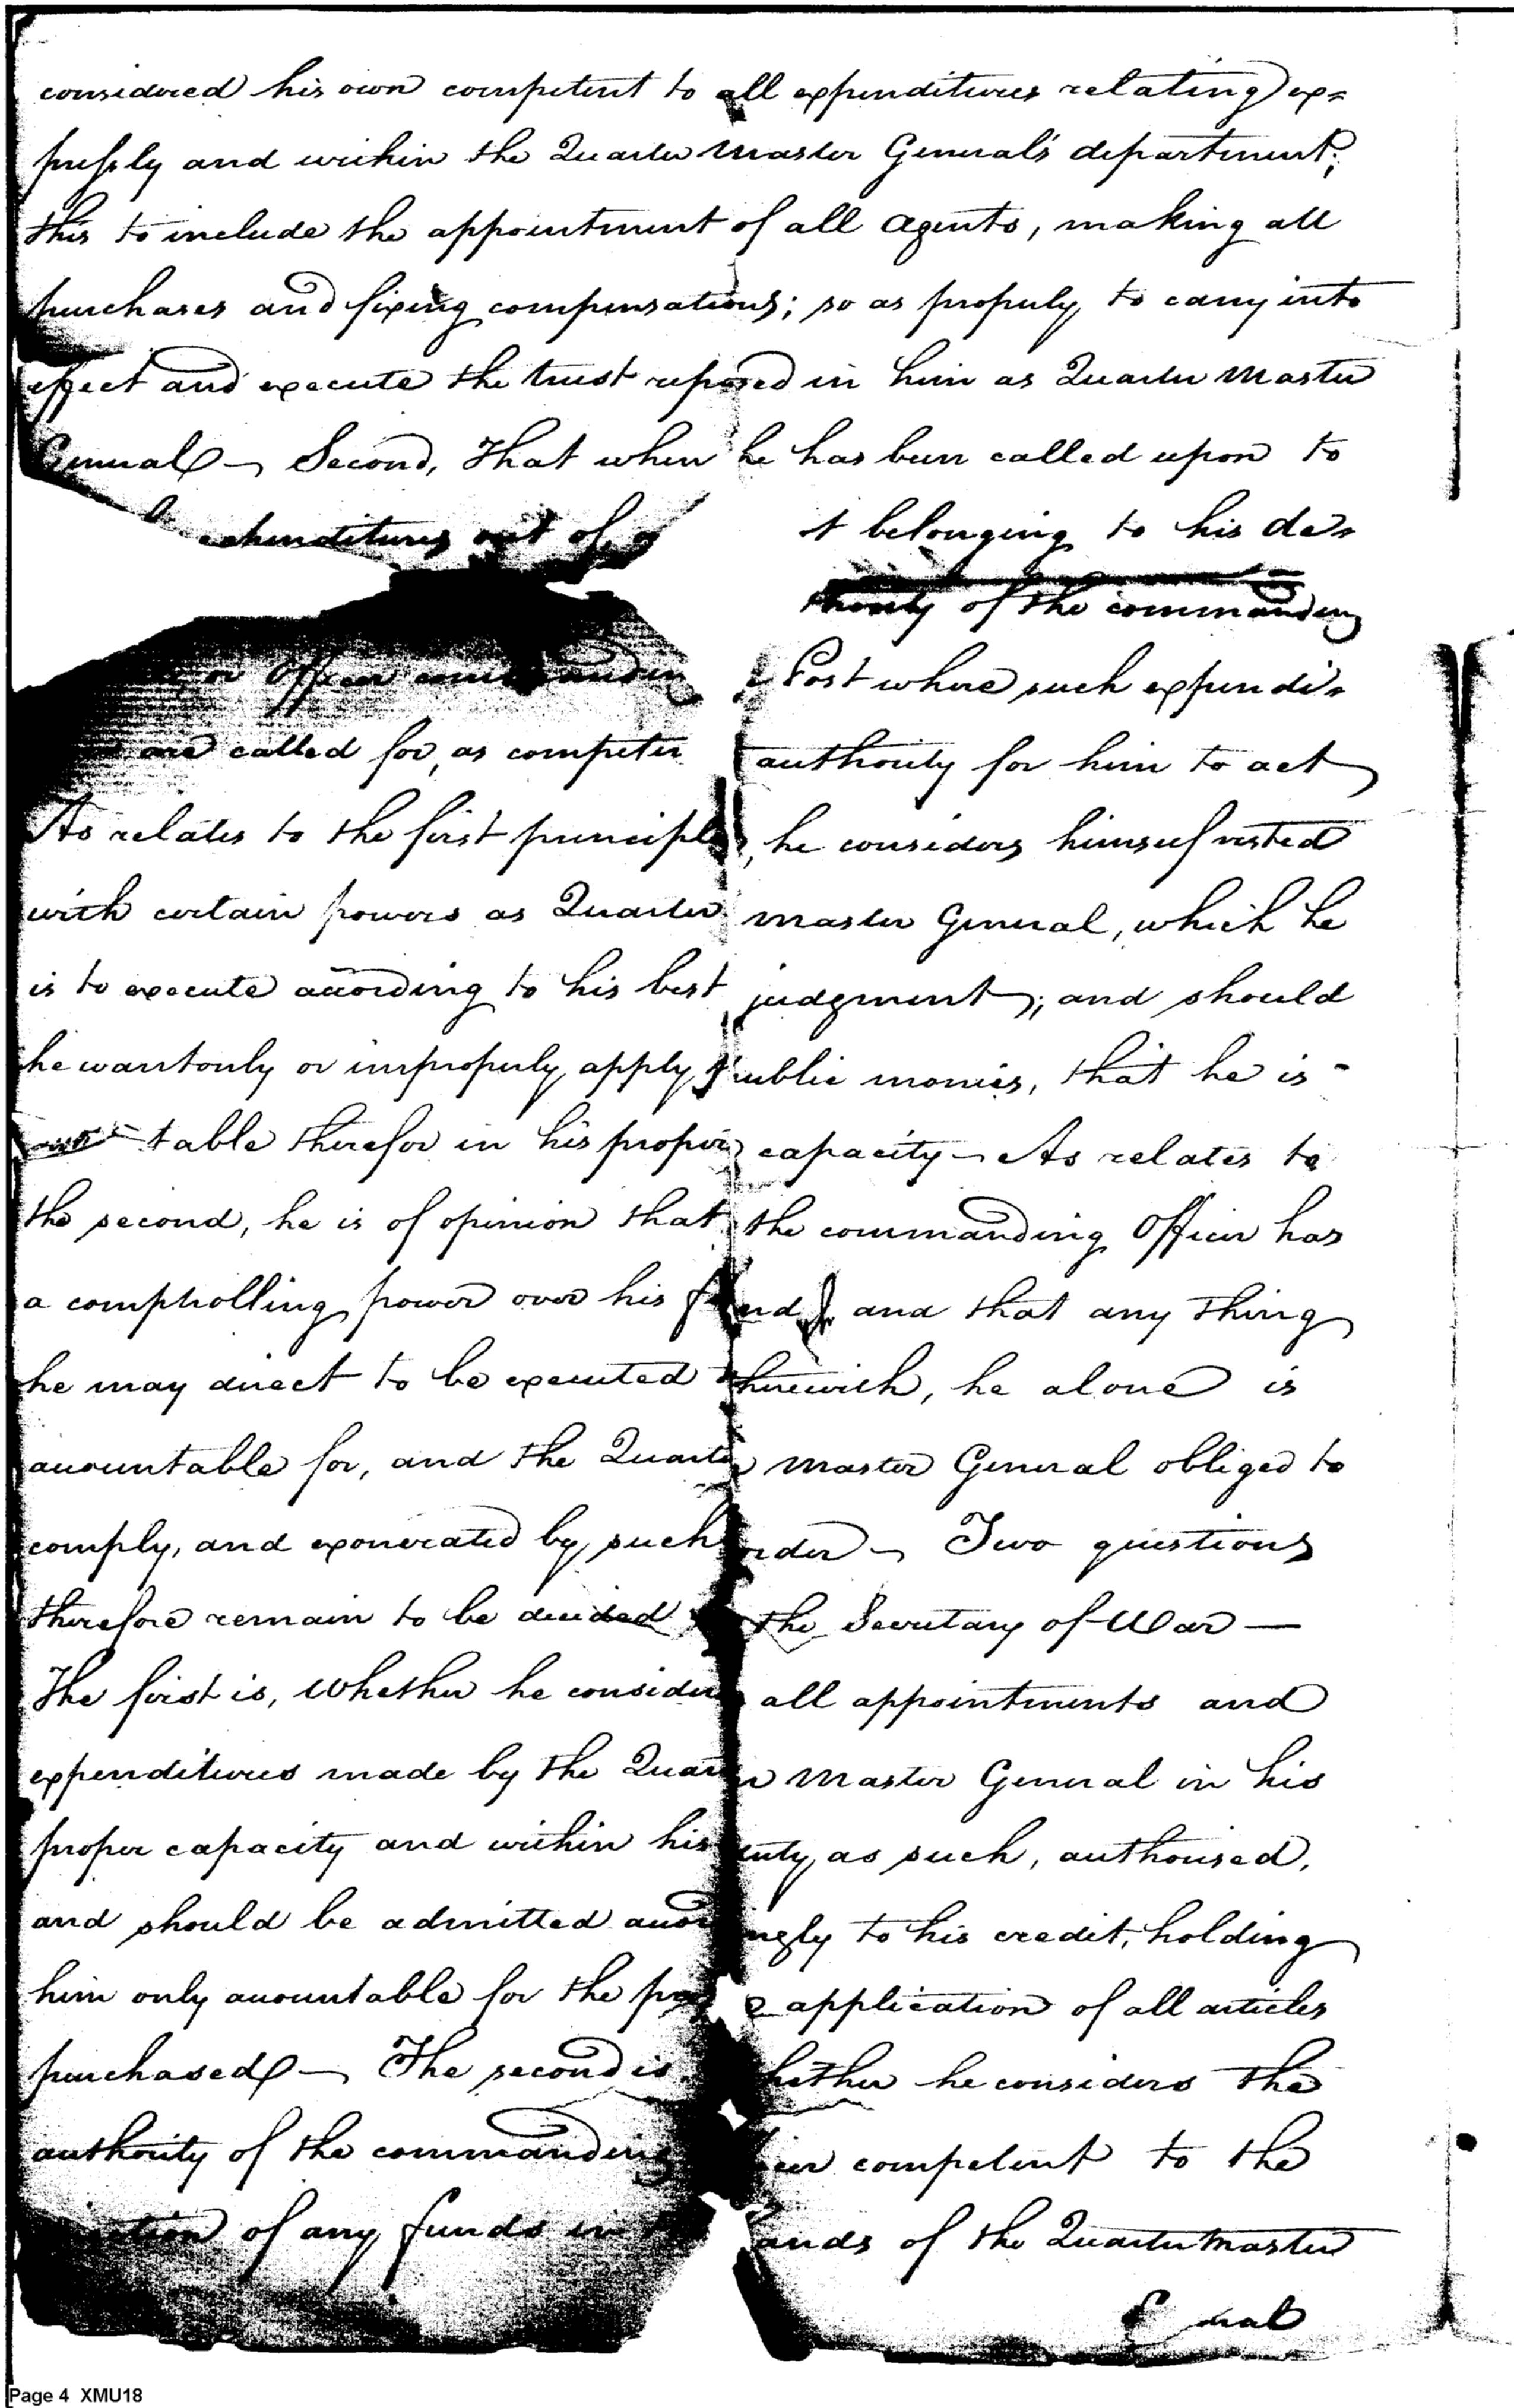 considered his own competent to all expenditures relating ex=
pressly and within the Quarter Master General's department;
this to include the appointment of all agents, making all
purchases and fixing compensations; so as properly to carry into
effect and execute the trust reposed in him as Quarter Master
General — Second, That when he has been called upon to
expenditures out of belonging to his de=
of the commanding
or Officer commanding Post where such expendi=
are called for, as authority for him to act
As relates to the first principle, he considers himself vested
with certain powers as Quarter Master General, which he
is to execute according to his best judgment; and should
he wantonly or improperly apply public monies, that he is
table therefor in his proper capacity — As relates to
the second, he is of opinion that the commanding Officer has
a comptrolling power over his funds and that any thing
he may direct to be executed therewith, he alone is
accountable for, and the Quarter Master General obliged to
comply, and exonerated by such order — Two questions
therefore remain to be decided the Secretary of War —
The first is, Whether he considers all appointments and
expenditures made by the Quarter Master General in his
proper capacity and within his duty as such, authorised,
and should be admitted accordingly to his credit, holding
him only accountable for the application of all articles
purchased — The second is whether he considers the
authority of the commanding competent to the
of any funds in hands of the Quarter Master

Page 4 XMU18